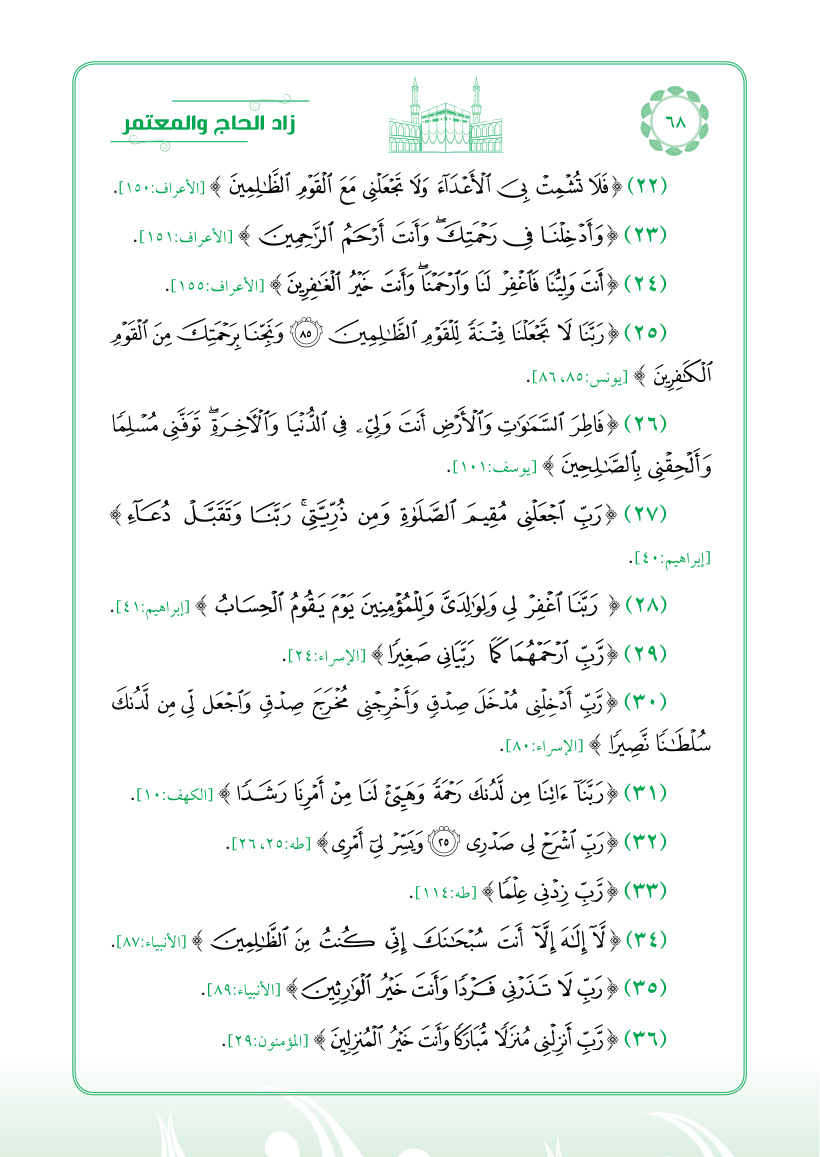 ٦٨
زاد الحاج والمعتمر
(٢٢) ﴿فَلَا تُشْمِتْ بِىَ ٱلْأَعْدَآءَ وَلَا تَجْعَلْنِى مَعَ ٱلْقَوْمِ ٱلظَّٰلِمِينَ ﴾ [الأعراف:١٥٠].
(٢٣) ﴿وَأَدْخِلْنَا فِى رَحْمَتِكَ ۖ وَأَنتَ أَرْحَمُ ٱلرَّٰحِمِينَ ﴾ [الأعراف:١٥١].
(٢٤) ﴿أَنتَ وَلِيُّنَا فَٱغْفِرْ لَنَا وَٱرْحَمْنَا ۖ وَأَنتَ خَيْرُ ٱلْغَٰفِرِينَ ﴾ [الأعراف:١٥٥].
(٢٥) ﴿رَبَّنَا لَا تَجْعَلْنَا فِتْنَةً لِّلْقَوْمِ ٱلظَّٰلِمِينَ ۝٨٥ وَنَجِّنَا بِرَحْمَتِكَ مِنَ ٱلْقَوْمِ
ٱلْكَٰفِرِينَ ﴾ [يونس:٨٥، ٨٦].
(٢٦) ﴿فَاطِرَ ٱلسَّمَٰوَٰتِ وَٱلْأَرْضِ أَنتَ وَلِىِّۦ فِى ٱلدُّنْيَا وَٱلْءَاخِرَةِ ۖ تَوَفَّنِى مُسْلِمًا
وَأَلْحِقْنِى بِٱلصَّٰلِحِينَ ﴾ [يوسف:١٠١].
(٢٧) ﴿رَبِّ ٱجْعَلْنِى مُقِيمَ ٱلصَّلَوٰةِ وَمِن ذُرِّيَّتِى ۚ رَبَّنَا وَتَقَبَّلْ دُعَآءِ ﴾
[إبراهيم:٤٠].
(٢٨) ﴿ رَبَّنَا ٱغْفِرْ لِى وَلِوَٰلِدَىَّ وَلِلْمُؤْمِنِينَ يَوْمَ يَقُومُ ٱلْحِسَابُ ﴾ [إبراهيم:٤١].
(٢٩) ﴿رَّبِّ ٱرْحَمْهُمَا كَمَا رَبَّيَانِى صَغِيرًا ﴾ [الإسراء:٢٤].
(٣٠) ﴿رَّبِّ أَدْخِلْنِى مُدْخَلَ صِدْقٍ وَأَخْرِجْنِى مُخْرَجَ صِدْقٍ وَٱجْعَل لِّى مِن لَّدُنكَ
سُلْطَٰنًا نَّصِيرًا ﴾ [الإسراء:٨٠].
(٣١) ﴿رَبَّنَآ ءَاتِنَا مِن لَّدُنكَ رَحْمَةً وَهَيِّئْ لَنَا مِنْ أَمْرِنَا رَشَدًا ﴾ [الكهف:١٠].
(٣٢) ﴿رَبِّ ٱشْرَحْ لِى صَدْرِى ۝٢٥ وَيَسِّرْ لِىٓ أَمْرِى﴾ [طه:٢٥، ٢٦].
(٣٣) ﴿رَّبِّ زِدْنِى عِلْمًا﴾ [طه:١١٤].
(٣٤) ﴿لَّآ إِلَٰهَ إِلَّآ أَنتَ سُبْحَٰنَكَ إِنِّى كُنتُ مِنَ ٱلظَّٰلِمِينَ ﴾ [الأنبياء:٨٧].
(٣٥) ﴿رَبِّ لَا تَذَرْنِى فَرْدًا وَأَنتَ خَيْرُ ٱلْوَٰرِثِينَ﴾ [الأنبياء:٨٩].
(٣٦) ﴿رَّبِّ أَنزِلْنِى مُنزَلًا مُّبَارَكًا وَأَنتَ خَيْرُ ٱلْمُنزِلِينَ ﴾ [المؤمنون:٢٩].